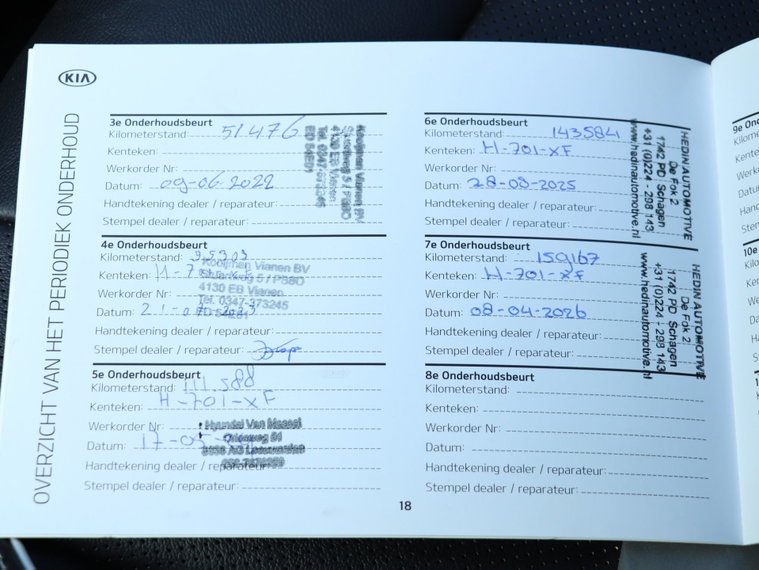 KIA
OVERZICHT VAN HET PERIODIEK ONDERHOUD
3e Onderhoudsbeurt
Kilometerstand: 51.476
Kenteken:
Werkorder Nr:
Datum: 09-06-2022
Handtekening dealer / reparateur:
Stempel dealer / reparateur:
Kooijman Vianen BV
4130 EB Vianen
Tel. 0347-373245
4e Onderhoudsbeurt
Kilometerstand:
Kenteken: H-7
Werkorder Nr:
Datum: 21-07
Handtekening dealer / reparateur:
Stempel dealer / reparateur:
Kooijman Vianen BV
4130 EB Vianen
Tel. 0347-373245
5e Onderhoudsbeurt
Kilometerstand: 111.588
Kenteken: H-701-XF
Werkorder Nr:
Datum: 17-05-
Handtekening dealer / reparateur:
Stempel dealer / reparateur:
Hyundai Van
6e Onderhoudsbeurt
Kilometerstand: 143584
Kenteken: H-701-XF
Werkorder Nr:
Datum: 28-08-2025
Handtekening dealer / reparateur:
Stempel dealer / reparateur:
HEDIN AUTOMOTIVE
De Fok 2
1742 PD Schagen
+31 (0)224 - 298 143
www.hedinautomotive.nl
7e Onderhoudsbeurt
Kilometerstand: 159167
Kenteken: H-701-XF
Werkorder Nr:
Datum: 08-04-2026
Handtekening dealer / reparateur:
Stempel dealer / reparateur:
HEDIN AUTOMOTIVE
De Fok 2
1742 PD Schagen
+31 (0)224 - 298 143
www.hedinautomotive.nl
8e Onderhoudsbeurt
Kilometerstand:
Kenteken:
Werkorder Nr:
Datum:
Handtekening dealer / reparateur:
Stempel dealer / reparateur:
18
9e
10e